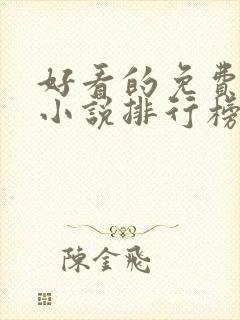 好看的免費
小說排行榜
陳金飛